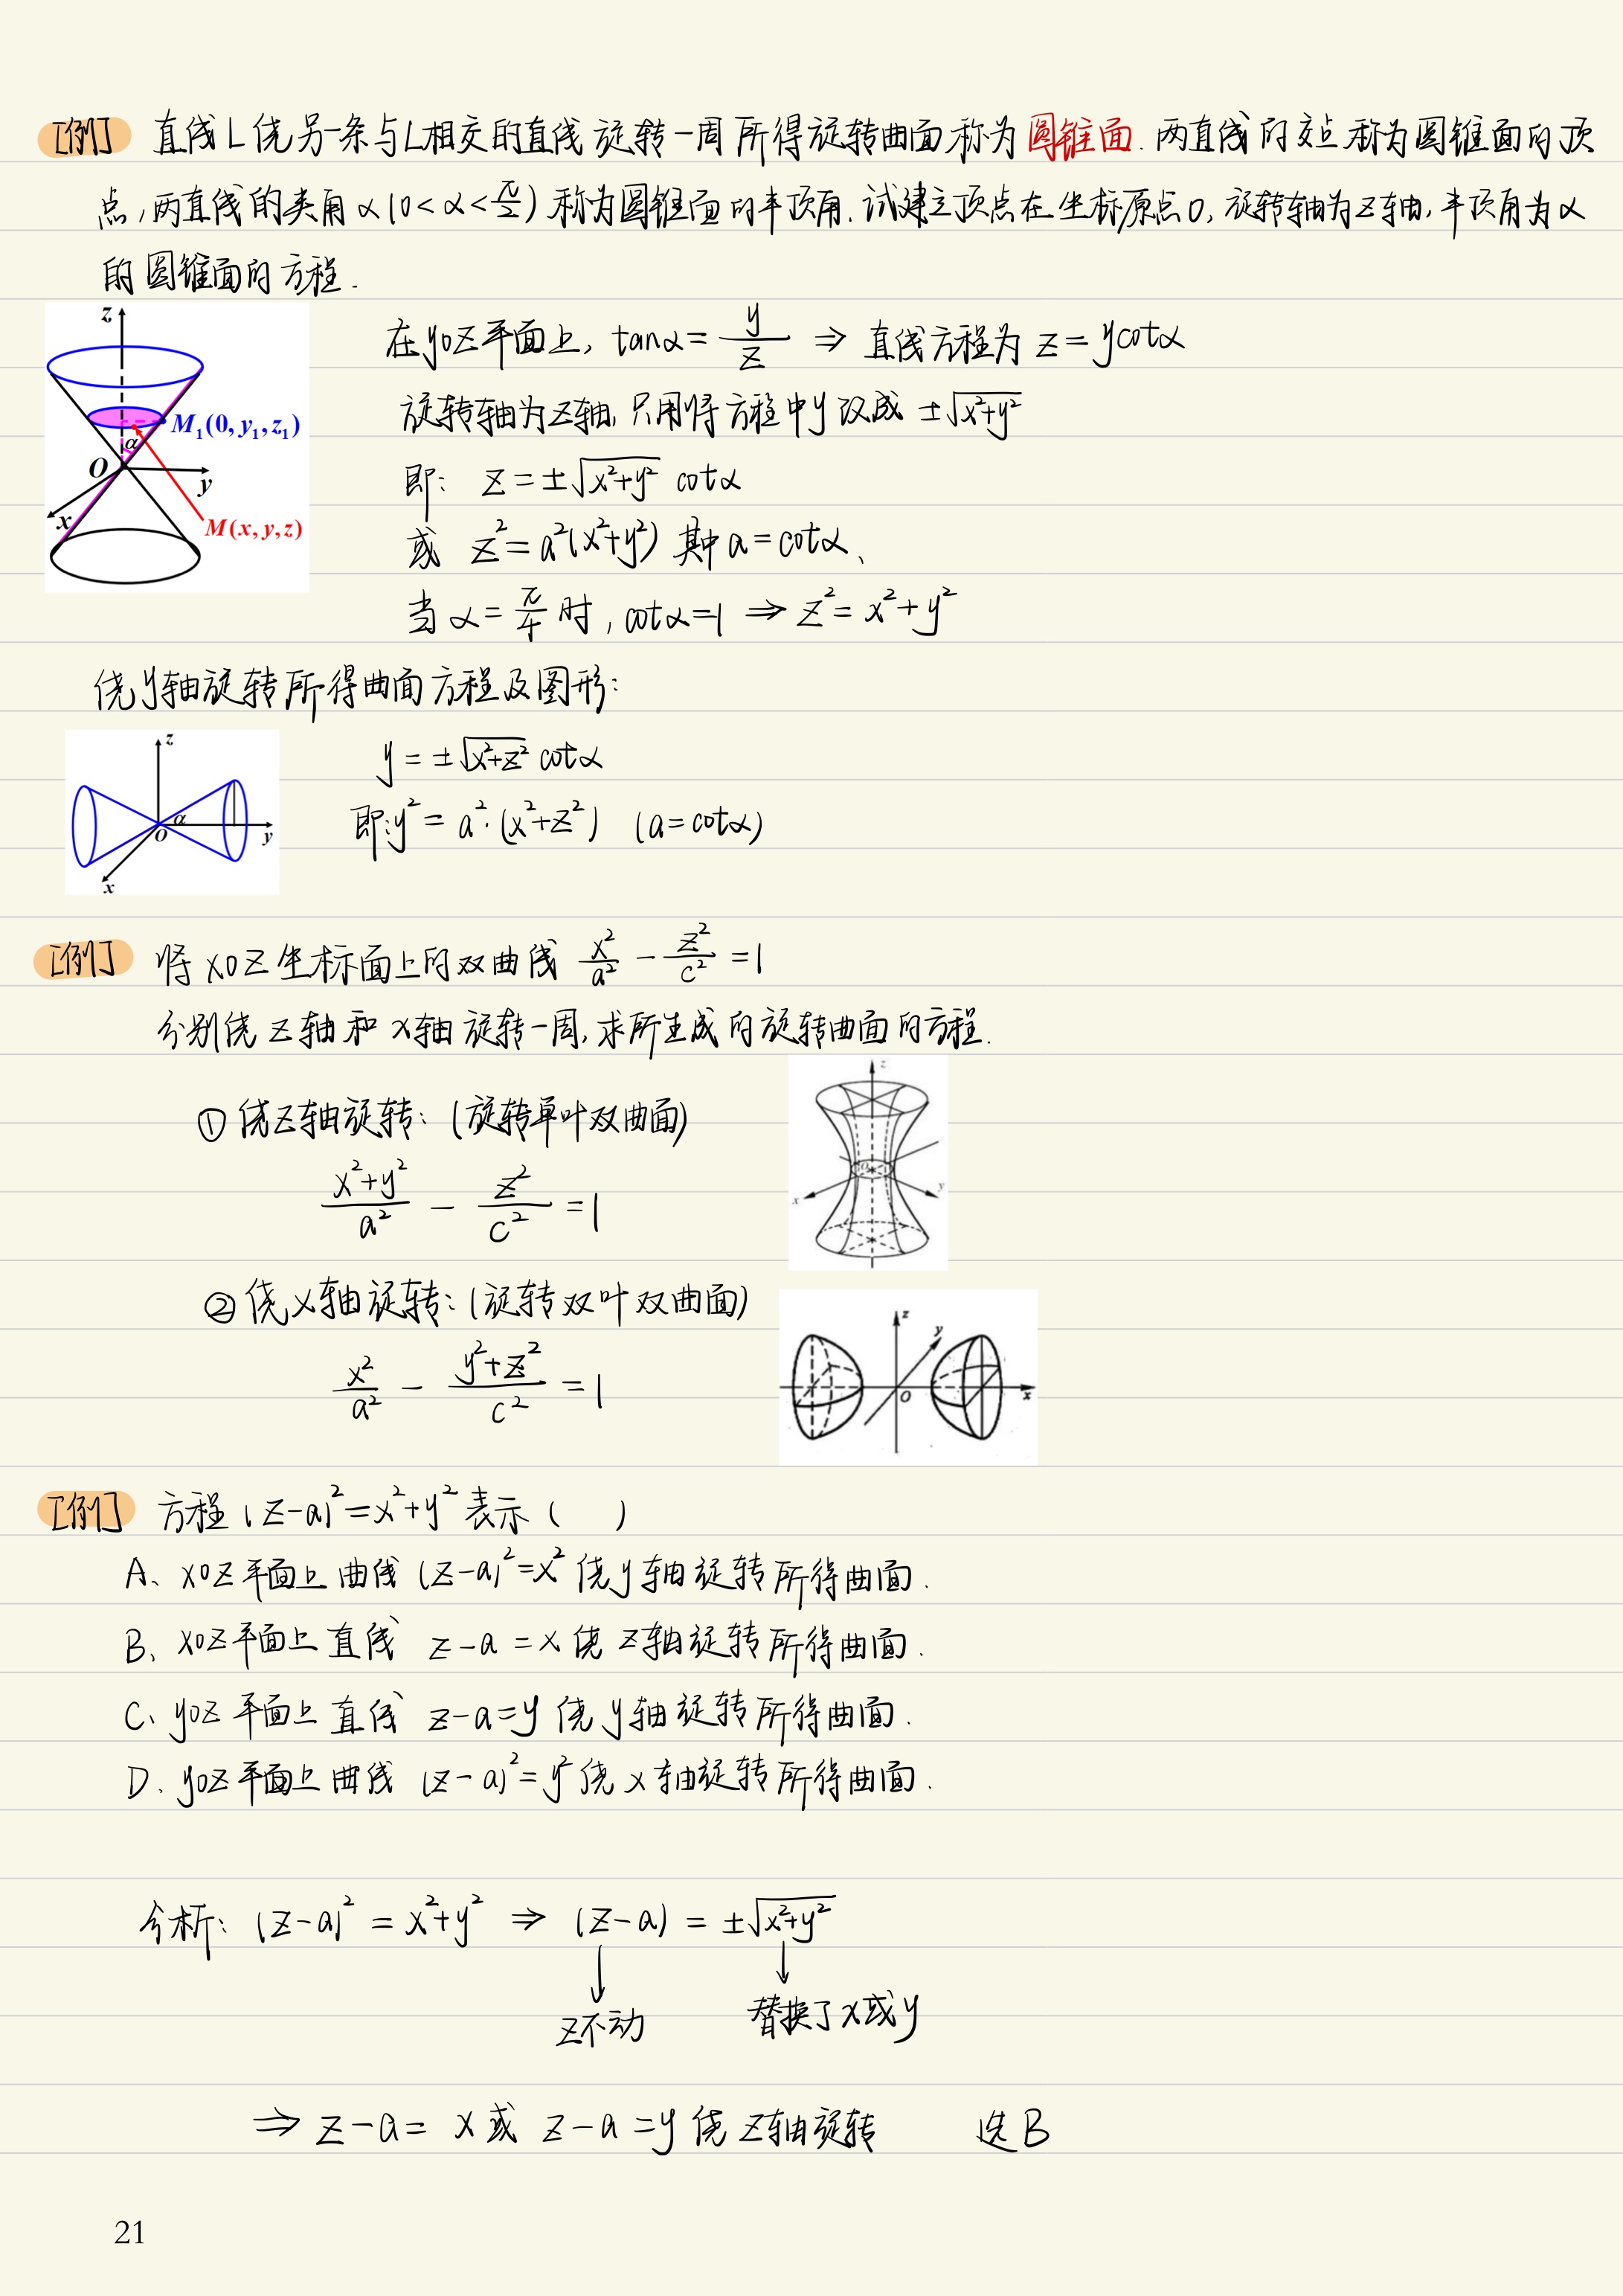 [例] 直线L绕另一条与L相交的直线旋转一周所得旋转曲面称为圆锥面.两直线的交点称为圆锥面的顶
点,两直线的夹角α(0<α<π/2)称为圆锥面的半顶角.试建立顶点在坐标原点O,旋转轴为z轴,半顶角为α
的圆锥面的方程.
z
M₁(0,y₁,z₁)
α
O
y
x
M(x,y,z)
在yoz平面上, tanα=y/z ⇒ 直线方程为 z=ycotα
旋转轴为z轴,只用将方程中y改成 ±√(x²+y²)
即: z=±√(x²+y²) cotα
或 z²=a²(x²+y²) 其中a=cotα、
当α=π/4时,cotα=1 ⇒ z²=x²+y²
绕y轴旋转所得曲面方程及图形:
z
α
O
y
x
y=±√(x²+z²) cotα
即:y²=a²·(x²+z²) (a=cotα)
[例] 将xoz坐标面上的双曲线 x²/a² - z²/c² =1
分别绕z轴和x轴旋转一周,求所生成的旋转曲面的方程.
① 绕z轴旋转:(旋转单叶双曲面)
(x²+y²)/a² - z²/c² =1
z
O
x
y
② 绕x轴旋转:(旋转双叶双曲面)
x²/a² - (y²+z²)/c² =1
z
y
O
x
[例] 方程(z-a)²=x²+y²表示( )
A、xoz平面上曲线(z-a)²=x²绕y轴旋转所得曲面.
B、xoz平面上直线 z-a=x绕z轴旋转所得曲面.
C、yoz平面上直线 z-a=y绕y轴旋转所得曲面.
D、yoz平面上曲线 (z-a)²=y²绕x轴旋转所得曲面.
分析: (z-a)²=x²+y² ⇒ (z-a)=±√(x²+y²)
↓ ↓
z不动 替换了x或y
⇒ z-a=x或 z-a=y绕z轴旋转 选B
21